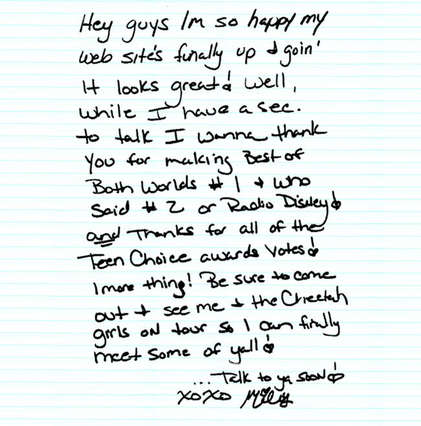 Hey guys Im so happy my
web site's finally up & goin'
It looks great! Well,
while I have a sec.
to talk I wanna thank
you for making Best of
Both Worlds #1 & who
Said #2 or Radio Disney!
and Thanks for all of the
Teen Choice awards votes!
1 more thing! Be sure to come
out & see me & the Cheetah
girls on tour so I can finally
meet some of yall!
...Talk to ya soon!
XOXO Miley